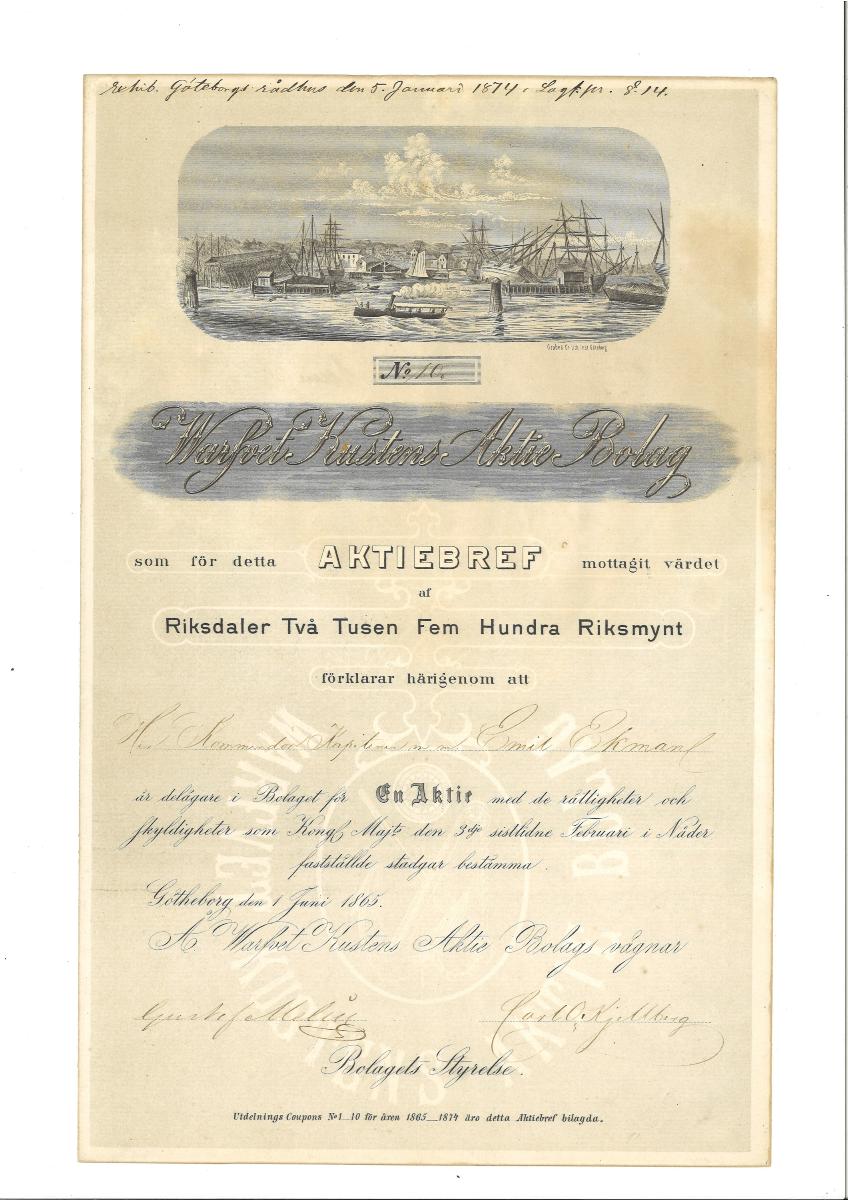 exhib. Göteborgs rådhus den 5. Januari 1874, Lagf. pr. §. 14.
No 10.
Warfvet Kustens Aktie Bolag
som för detta AKTIEBREF mottagit värdet
af
Riksdaler Två Tusen Fem Hundra Riksmynt
förklarar härigenom att
Herr Kommendör Kapitenen m. m. Emil Ekman
är delägare i Bolaget för En Aktie med de rättigheter och
skyldigheter som Kongl Majts den 3dje sistlidne Februari i Nåder
fastställde stadgar bestämma.
Götheborg den 1 Juni 1865.
Å Warfvet Kustens Aktie Bolags vägnar
Gustaf Carl O. Kjellberg
Bolagets Styrelse.
Utdelnings Coupons No 1_10 för åren 1865_1874 äro detta Aktiebref bilagda.